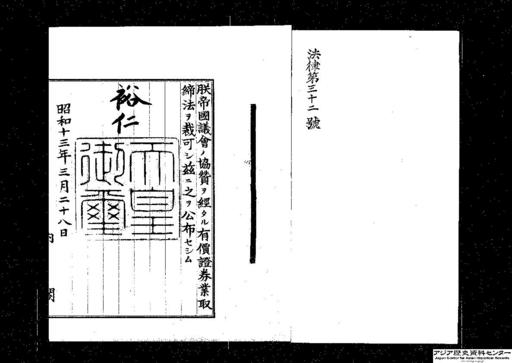 法律第三十二號
朕帝國議會ノ協贊ヲ經タル有價證券業取
締法ヲ裁可シ茲ニ之ヲ公布セシム
裕仁
天皇御璽
昭和十三年三月二十八日
内閣
アジア歴史資料センター
Japan Center for Asian Historical Records